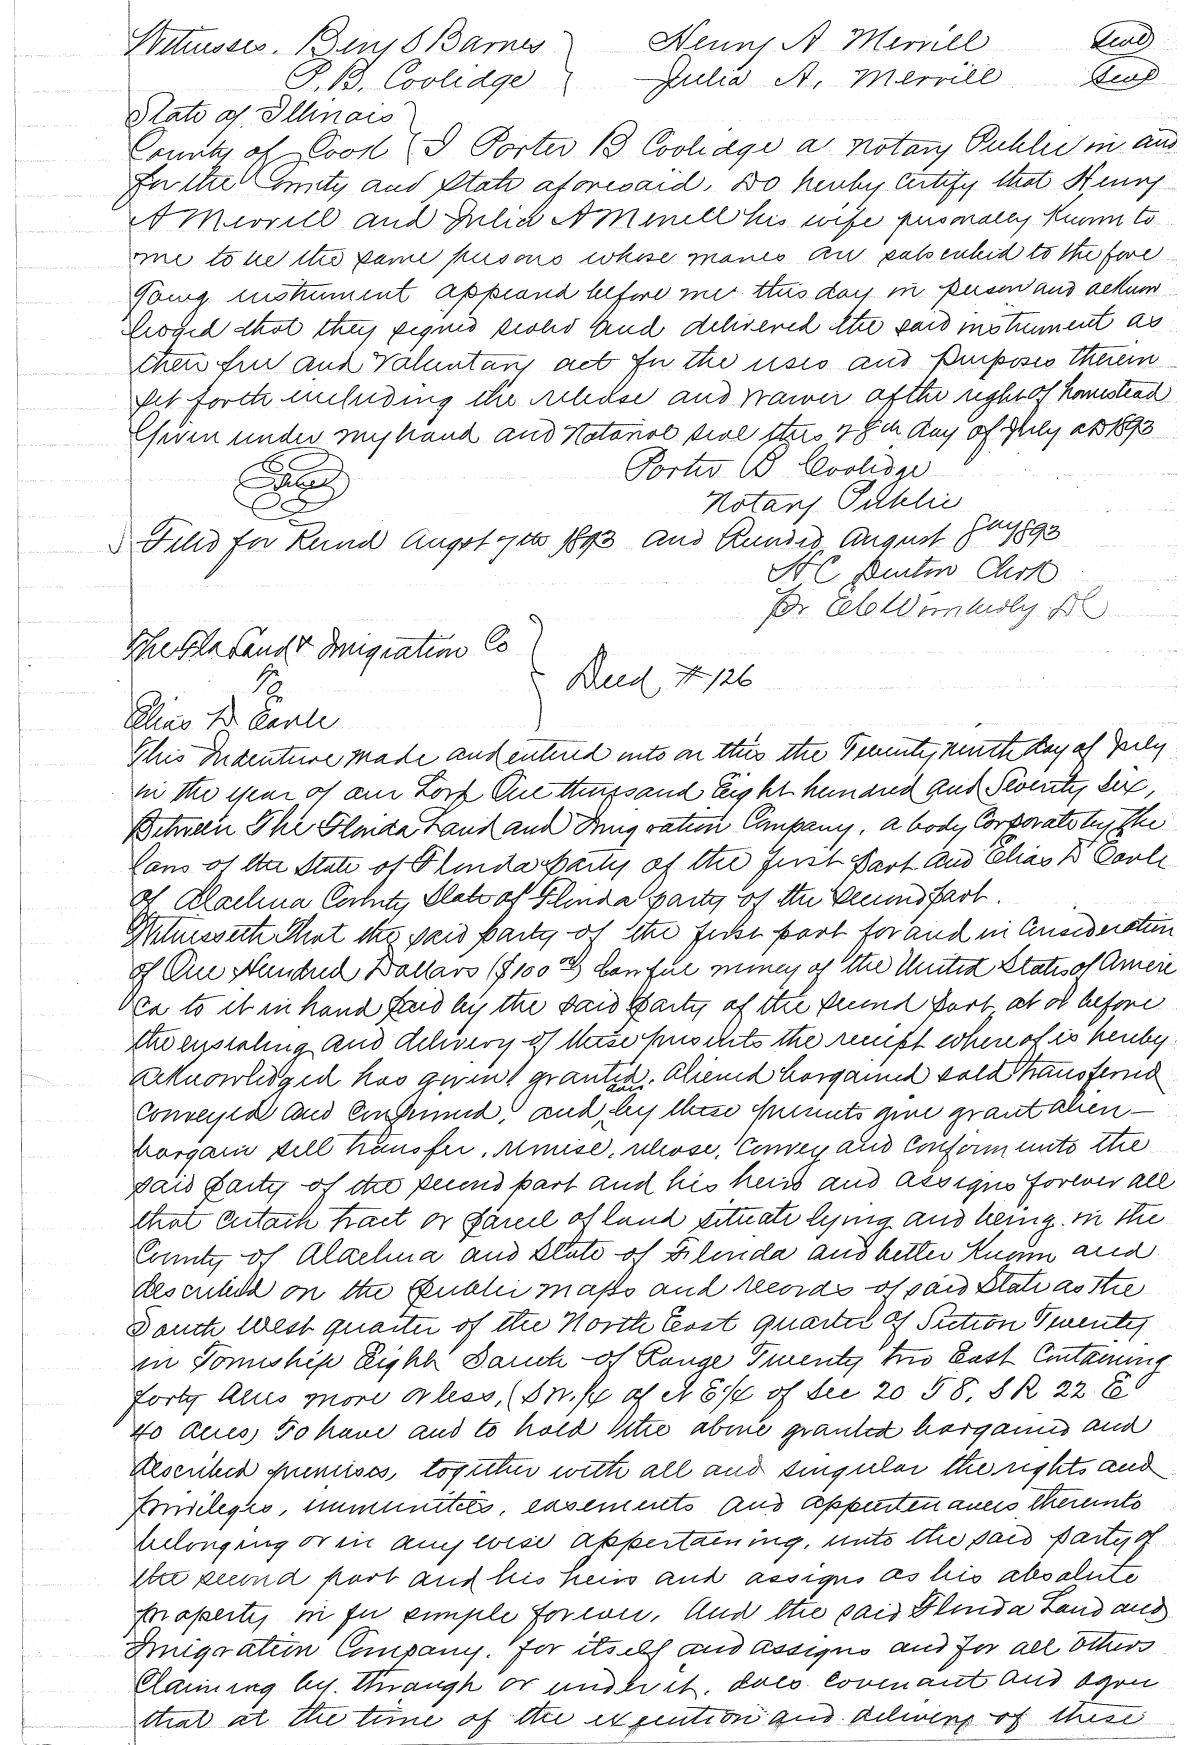 Witnesses. Benj S Barnes } Henry A Merrill Seal
P. B. Coolidge } Julia A. Merrill Seal
State of Illinois )
County of Cook ( I Porter B Coolidge a notary Public in and
for the County and State aforesaid, Do hereby certify that Henry
A Merrill and Julia A Merrill his wife personally known to
me to be the same persons whose names are subscribed to the fore
going instrument appeared before me this day in person and acknow
ledged that they signed sealed and delivered the said instrument as
their free and Voluntary act for the uses and purposes therein
set forth including the release and waiver of the right of homestead
Given under my hand and Notarial seal this 28th day of July AD 1893
Porter B Coolidge
Notary Public
Filed for Record August 7th 1893 and Recorded August 8th 1893
H C Denton Clerk
Pr Wimberly DC
The Fla Land & Imigration Co
To } Deed # 126
Elias D Earle
This Indenture made and entered into on this the Twenty ninth day of July
in the year of our Lord One thousand Eight hundred and Seventy Six,
Between The Florida Land and Imigration Company, a body Corporate by the
laws of the State of Florida party of the first part and Elias D Earle
of Alachua County State of Florida party of the second part.
Witnesseth That the said party of the first part for and in Consideration
of One Hundred Dollars ($100 00) lawful money of the United States of Ameri
ca to it in hand paid by the said party of the second part, at or before
the ensealing and delivery of these presents the receipt whereof is hereby
acknowledged has given, granted, aliened bargained sold transferred
conveyed and confirmed, and does by these presents give grant alien
bargain sell transfer, remise, release, convey and conform unto the
said party of the second part and his heirs and assigns forever all
that certain tract or parcel of land situate lying and being in the
County of Alachua and State of Florida and better Known and
described on the public maps and records of said State as the
South West quarter of the North East quarter of Section Twenty
in Township Eight South of Range Twenty two East Containing
forty acres more or less, (S W.1/4 of N E 1/4 of Sec 20 T 8. S R 22 E
40 acres) To have and to hold the above granted bargained and
described premises, together with all and singular the rights and
privileges, immunities, easements and appertenances thereunto
belonging or in any wise appertaining, unto the said party of
the second part and his heirs and assigns as his absolute
property in fee simple forever. And the said Florida Land and
Imigration Company, for itself and assigns and for all others
Claiming by, through or under it, does covenant and agree
that at the time of the execution and delivery of these